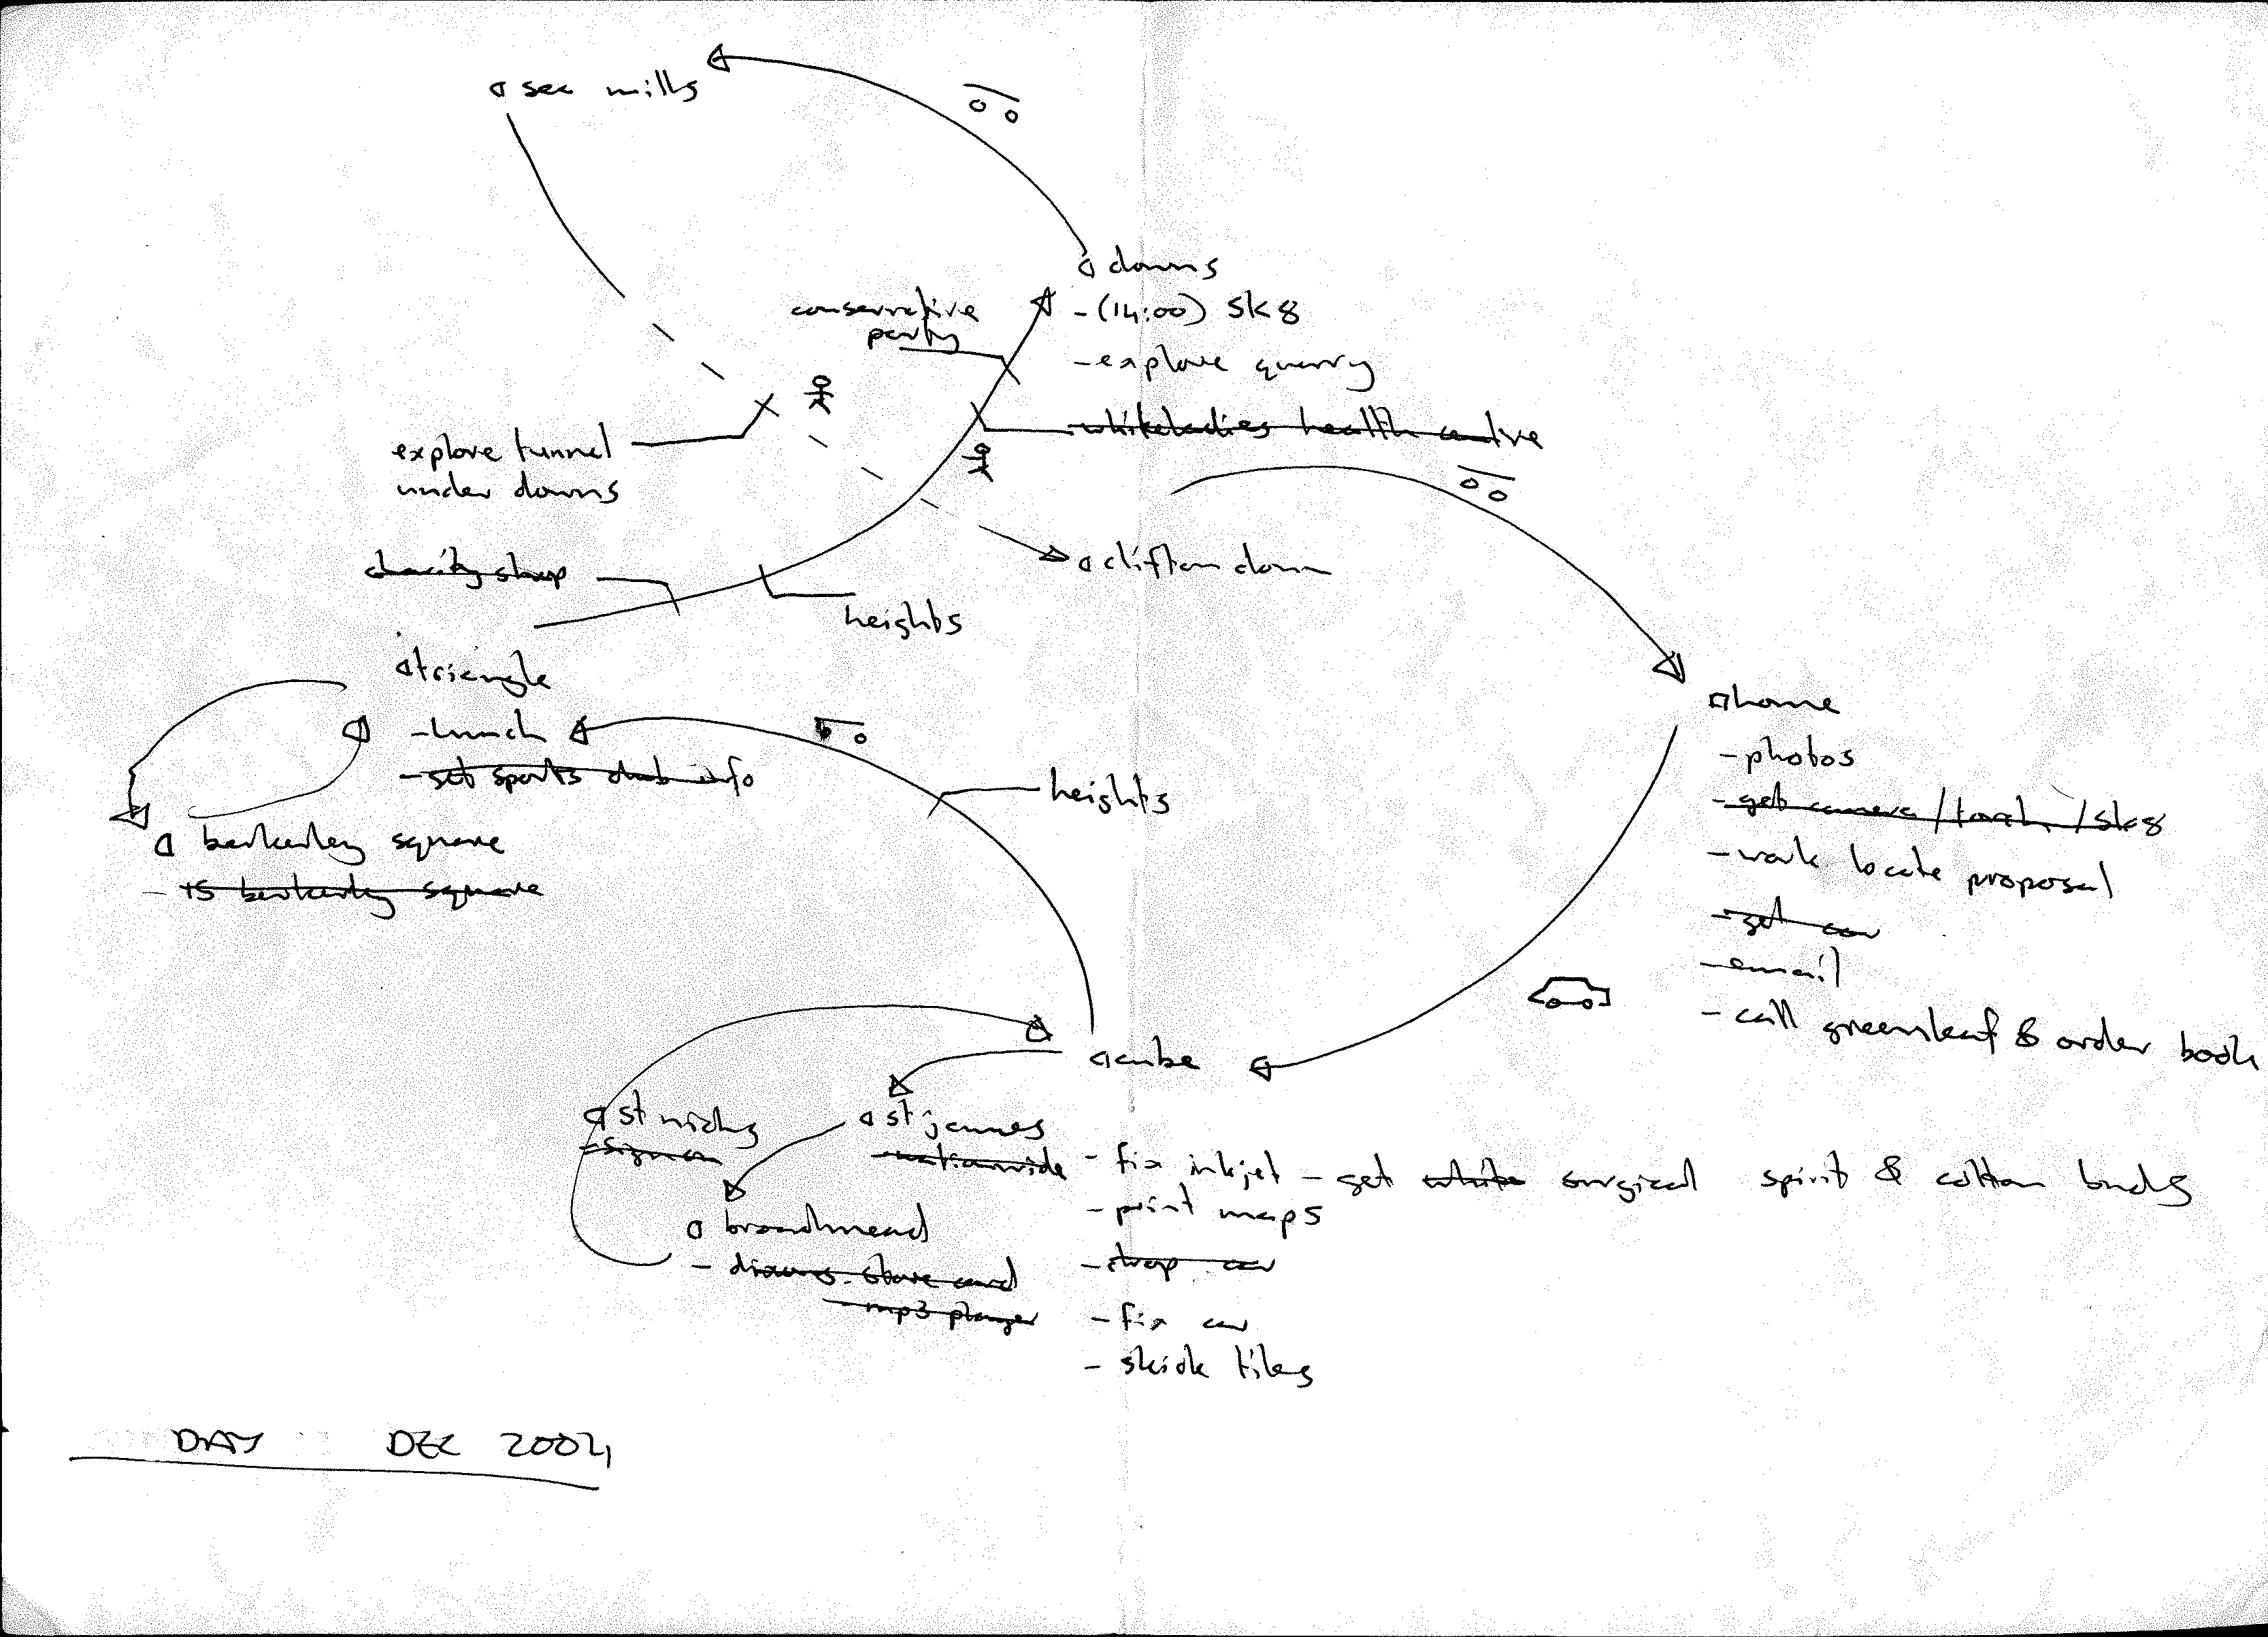 sea mills
downs
-(14:00) sk8
-explore quarry
conservative
party
whiteladies health centre
explore tunnel
under downs
clifton down
charity shop
heights
triangle
-lunch
-get sports club info
berkerley square
- 15 berkerly square
heights
home
-photos
-get camera/torch/sk8
-work locate proposal
-get car
-email
-call greenleaf & order book
cube
- fix inkjet - get white surgical spirit & cotton buds
- print maps
-drop car
-fix car
- tiles
st nicks
st james
-nationwide
broadmead
- store card
-mp3 player
DAY DEC 2004